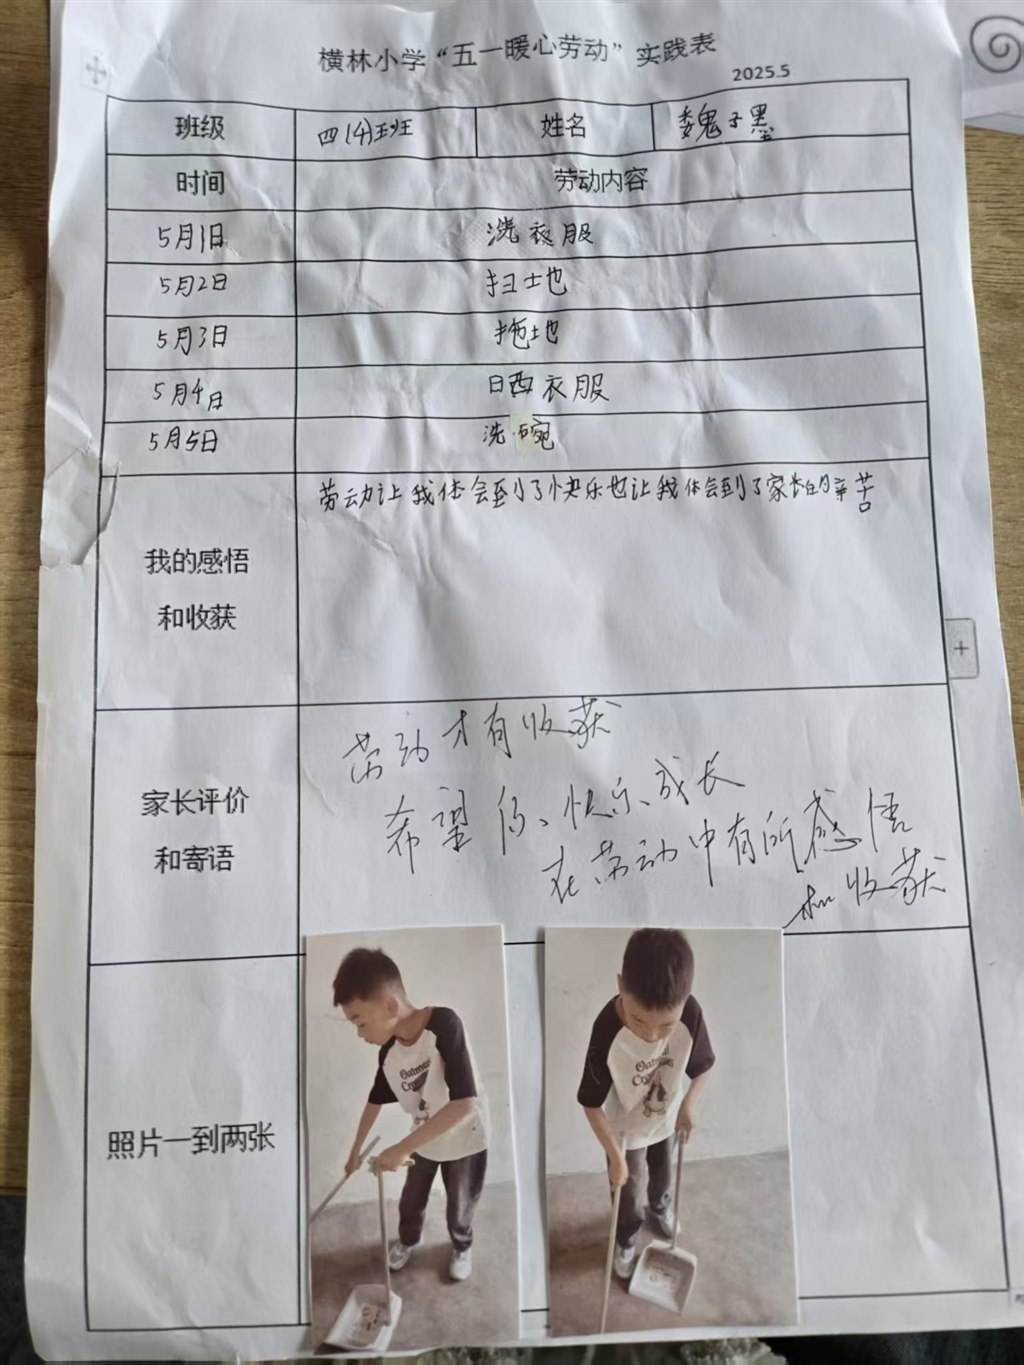 横林小学“五一暖心劳动”实践表
2025.5
班级 四(4)班 姓名 魏子墨
时间 劳动内容
5月1日 洗衣服
5月2日 扫地
5月3日 拖地
5月4日 晒衣服
5月5日 洗碗
劳动让我体会到了快乐也让我体会到了家长的辛苦
我的感悟
和收获
劳动才有收获
希望你、快乐、成长
在劳动中有所感悟
和收获
家长评价
和寄语
照片一到两张
Oatmeal